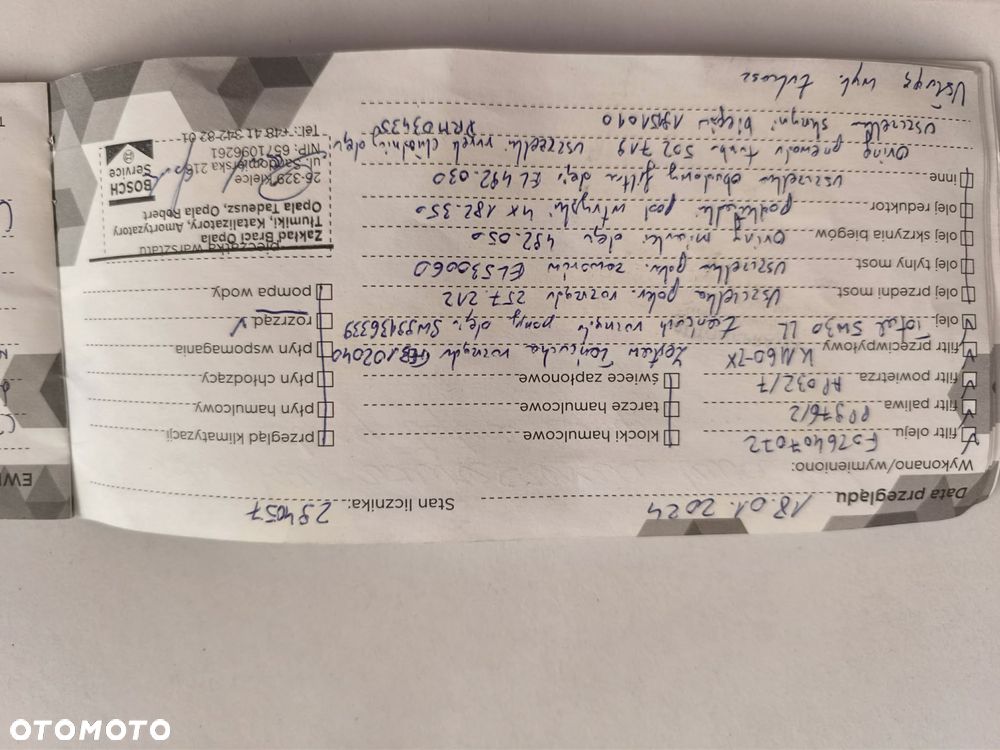 Data przeglądu 18.01.2024 Stan licznika: 294057
Wykonano/wymieniono:
filtr oleju FSZ6407022 klocki hamulcowe przegląd klimatyzacji
filtr paliwa PP976/2 tarcze hamulcowe płyn hamulcowy
filtr powietrza AP032/7 świece zapłonowe płyn chłodzący
filtr przeciwpyłowy Zestaw łańcucha rozrządu płyn wspomagania
olej Total 5W30 LL pompy oleju SW99136339 rozrząd
olej przedni most Uszczelka pokr. rozrządu 257.212 pompa wody
olej tylny most Uszczelka pokr. zaworów EL530060
olej skrzynia biegów Oring miarki oleju 492.050
olej reduktor podkładki pod wtryski 4x 182.350
inne uszczelka obudowy filtra oleju EL 492.030
Oring przewodu turbo 502719
uszczelka skrzyni biegów
Usługę wyk. Łukasz
pieczątka warsztatu
Zakład Braci Opala
Tłumiki, Katalizatory, Amortyzatory
Opala Tadeusz, Opala Robert
26-329 Kielce
NIP: 6571096261
Tel.: +48 41 342-82 01
BOSCH
Service
EWI
OTOMOTO